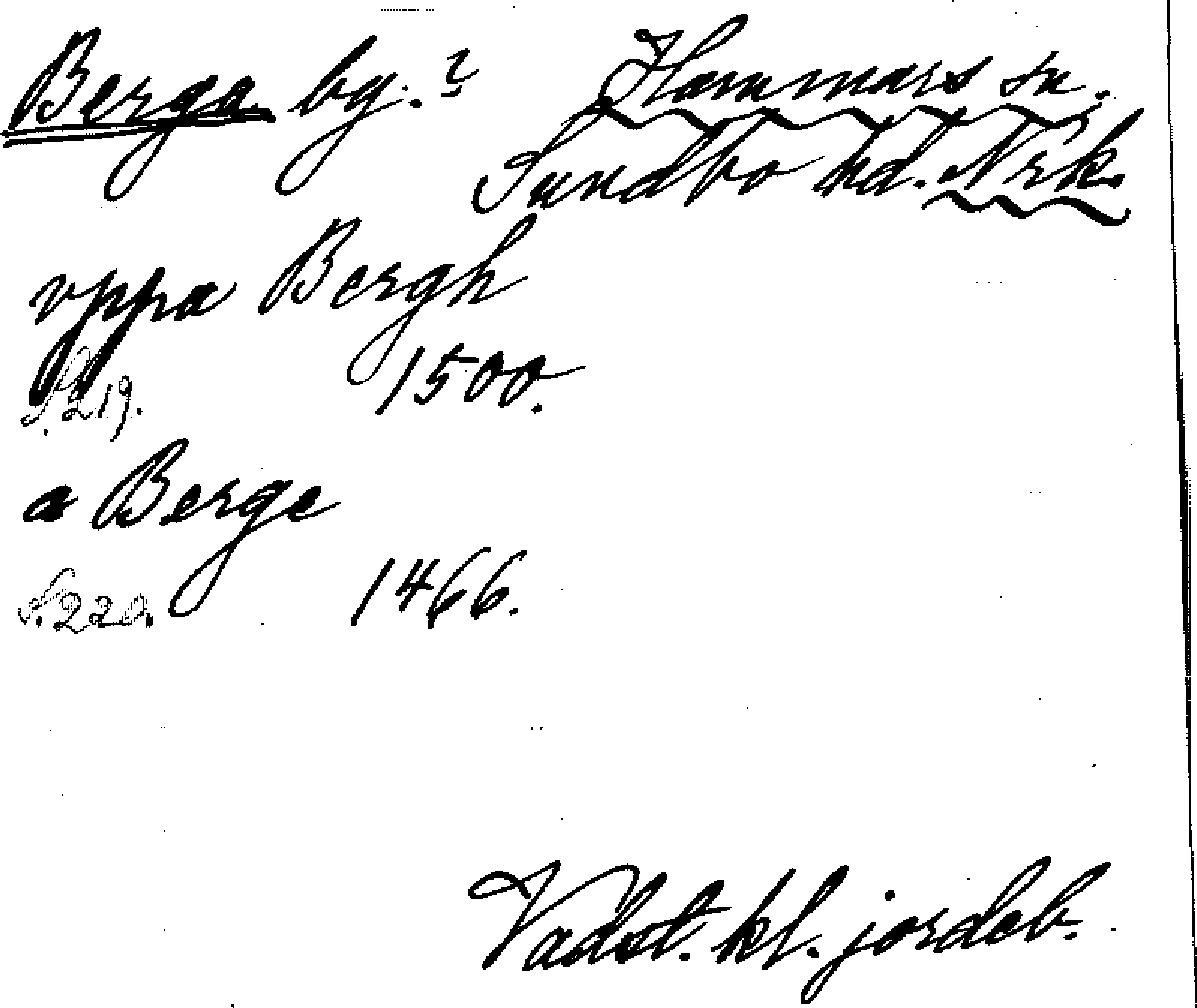 Berga by.? Hammars sn.
Sundbo hd. Nrk.
vppa Bergh
S. 219. 1500.
a Berge
S. 220. 1466.
Vadst. kl. jordeb.